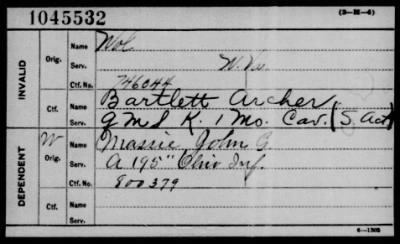 1045532
(3-M-4)
INVALID
Orig. Name
Serv. W. Va.
Ctf. No. 746044
Ctf. Name Bartlett Archer
Serv. K. 1 Mo. Cav. (S. Act)
DEPENDENT
W
Orig. Name Massie, John G.
Serv. A 195" Ohio Inf.
Ctf. No. 800379
Ctf. Name
Serv.